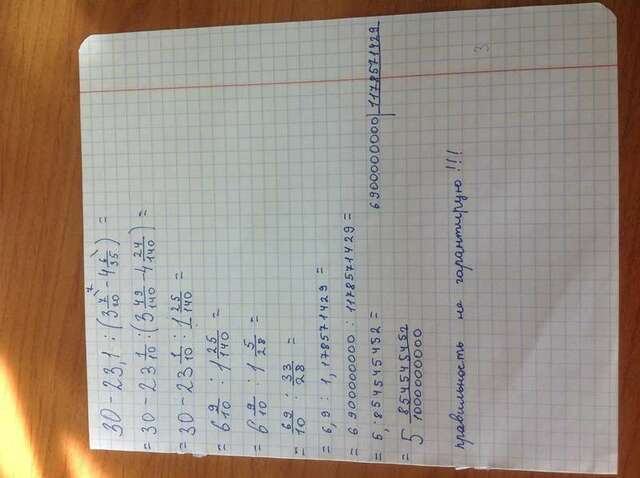 30 - 23,1 : (3 7/10 - 4 6/35) =
= 30 - 23 1/10 : (3 49/140 - 4 24/140) =
= 30 - 23 1/10 : 1 25/140 =
= 6 9/10 : 1 25/140 =
= 6 9/10 : 1 5/28 =
= 69/10 : 33/28 =
= 6,9 : 1,178571429 =
= 6.900000000 : 1178571429 =
= 5,854545452 =
6900000000 | 1178571429
= 5 854545452/1000000000
правильность не гарантирую !!!
3